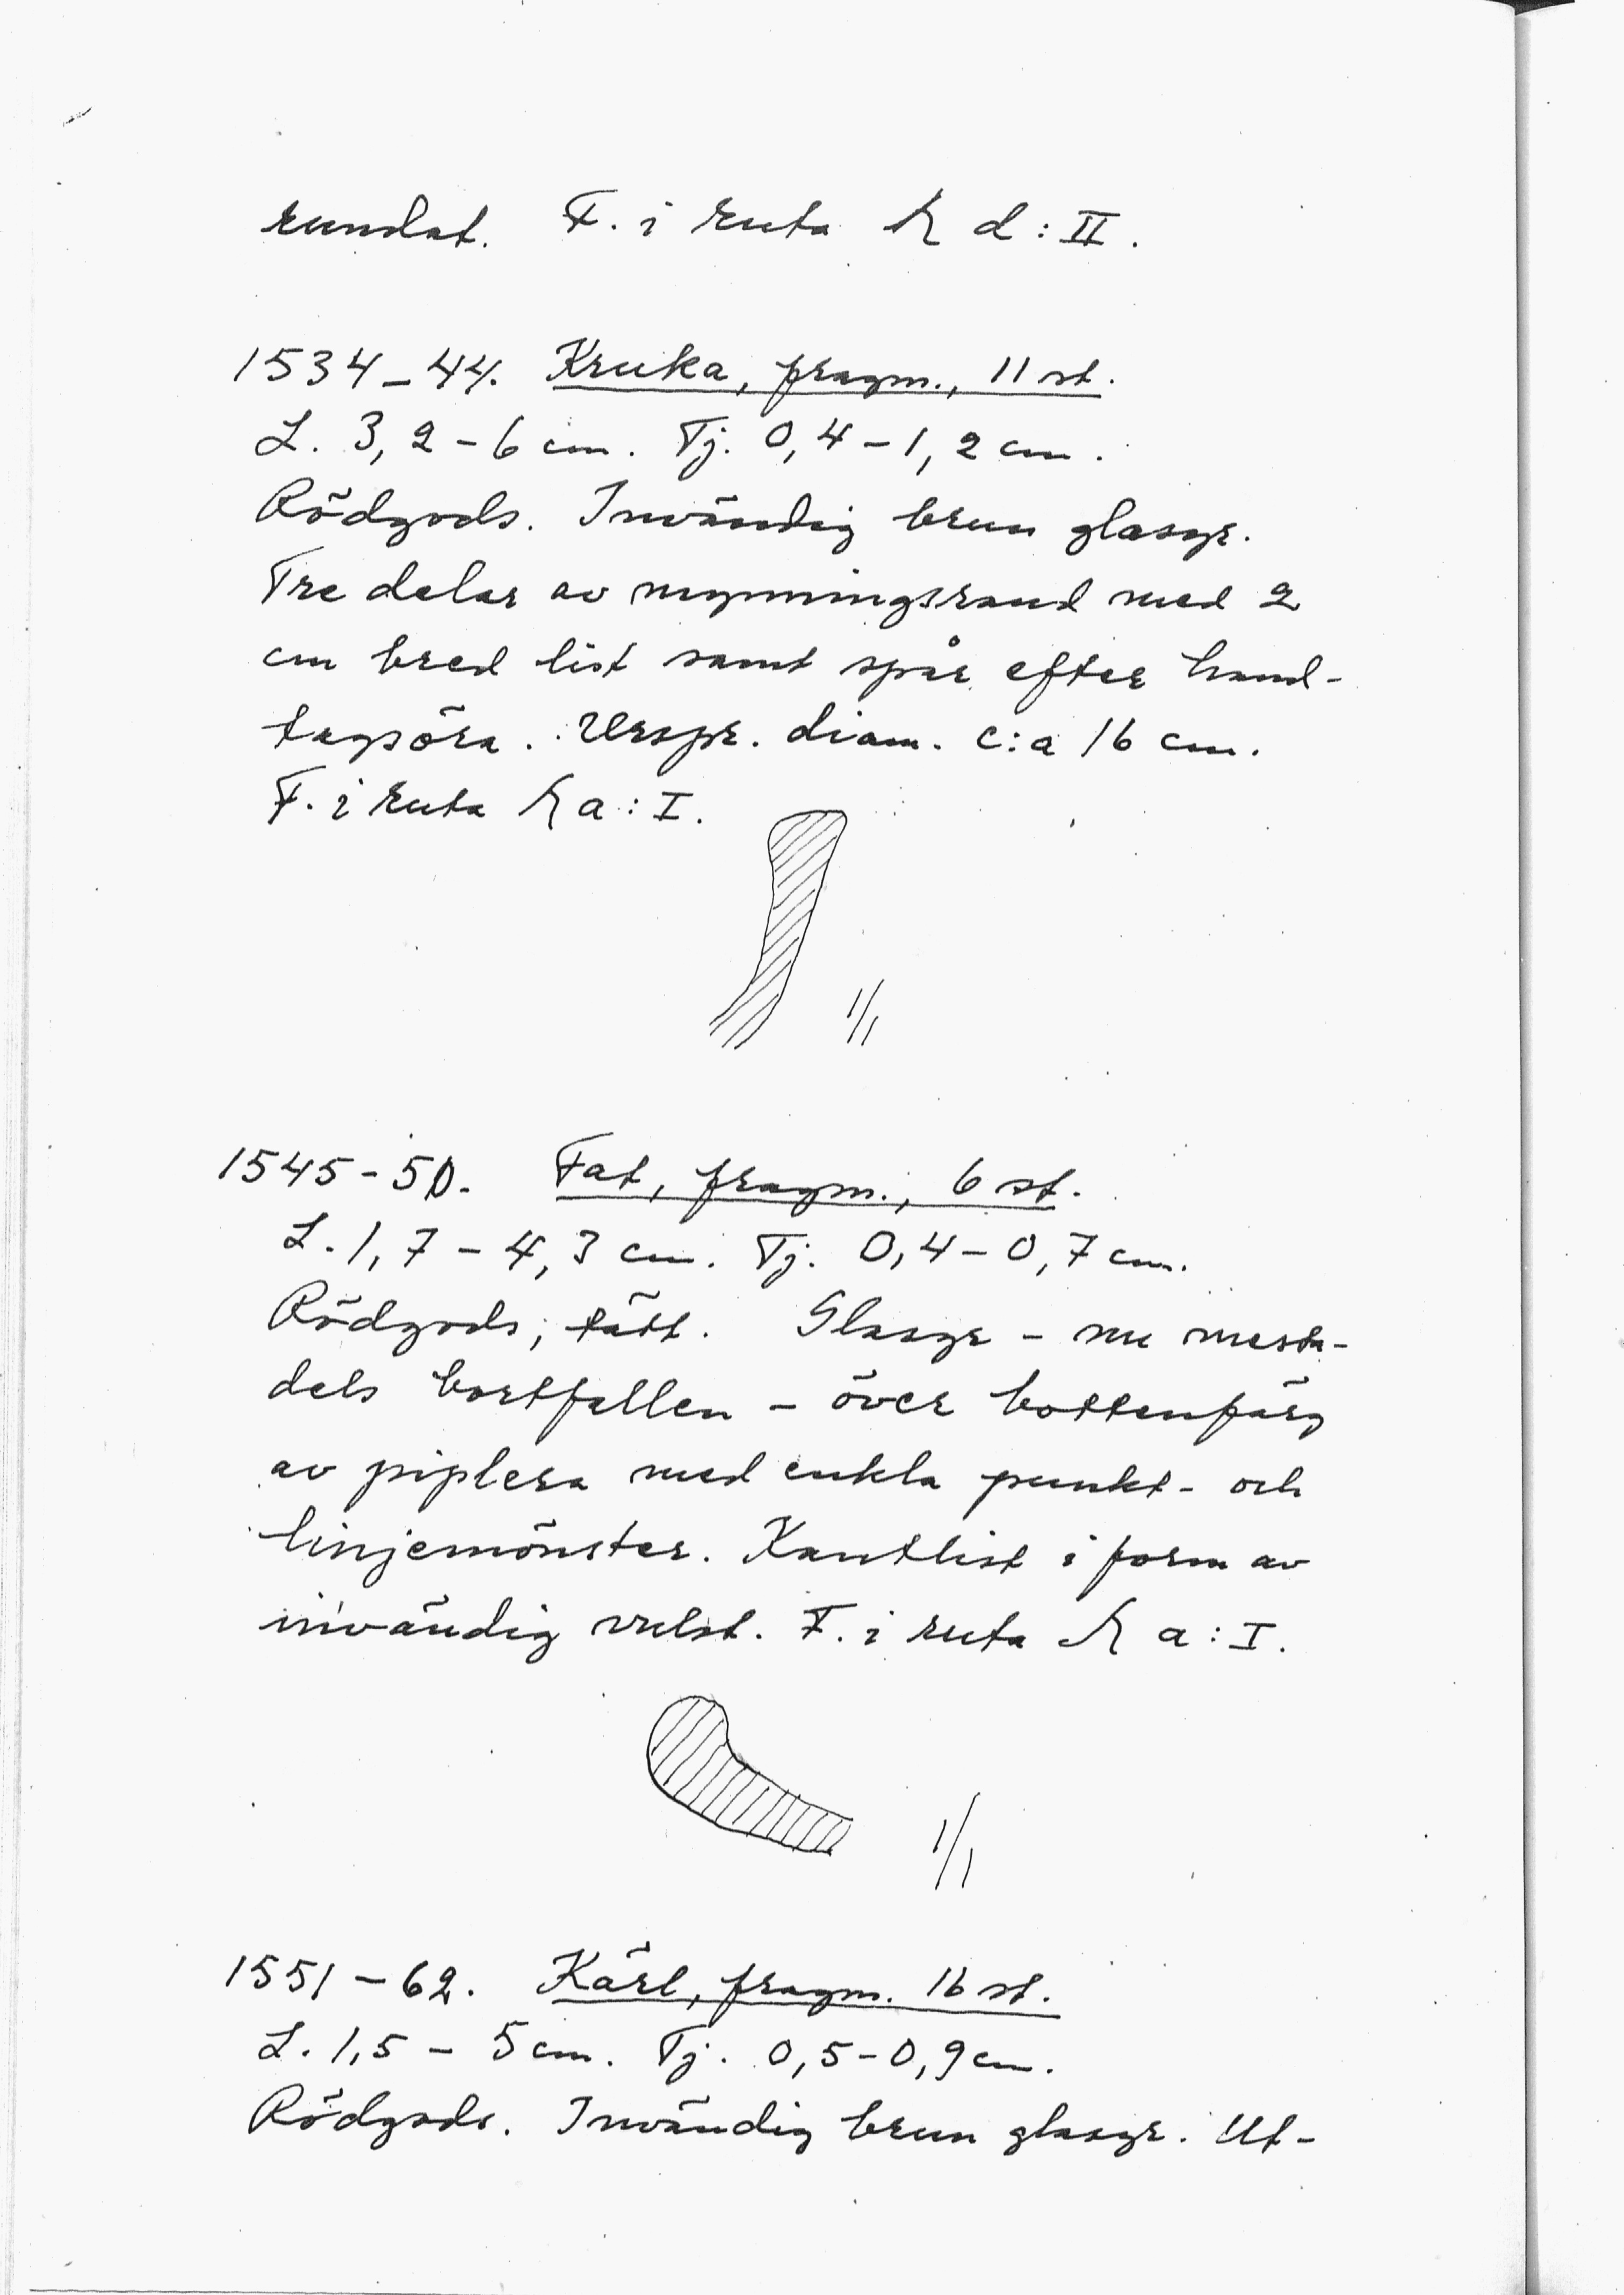 rundat. F. i ruta R d: II.
1534-44. Kruka, fragm., 11 st.
L. 3,2-6 cm. Tj. 0,4-1,2 cm.
Rödgods. Invändig brun glasyr.
Tre delar av mynningsrand med 2
cm bred list samt spår efter hand-
tagsöra. Urspr. diam. c:a 16 cm.
F. i ruta R a: I.
1/1
1545-50. Fat, fragm., 6 st.
L. 1,7-4,3 cm. Tj. 0,4-0,7 cm.
Rödgods, tätt. Glasyr - nu mesta-
dels bortfallen - över bottenfärg
av piplera med enkla punkt- och
linjemönster. Kantlist i form av
invändig vulst. F. i ruta R a: I.
1/1
1551-62. Kärl, fragm. 16 st.
L. 1,5 - 5 cm. Tj. 0,5-0,9 cm.
Rödgods. Invändig brun glasyr. Ut-